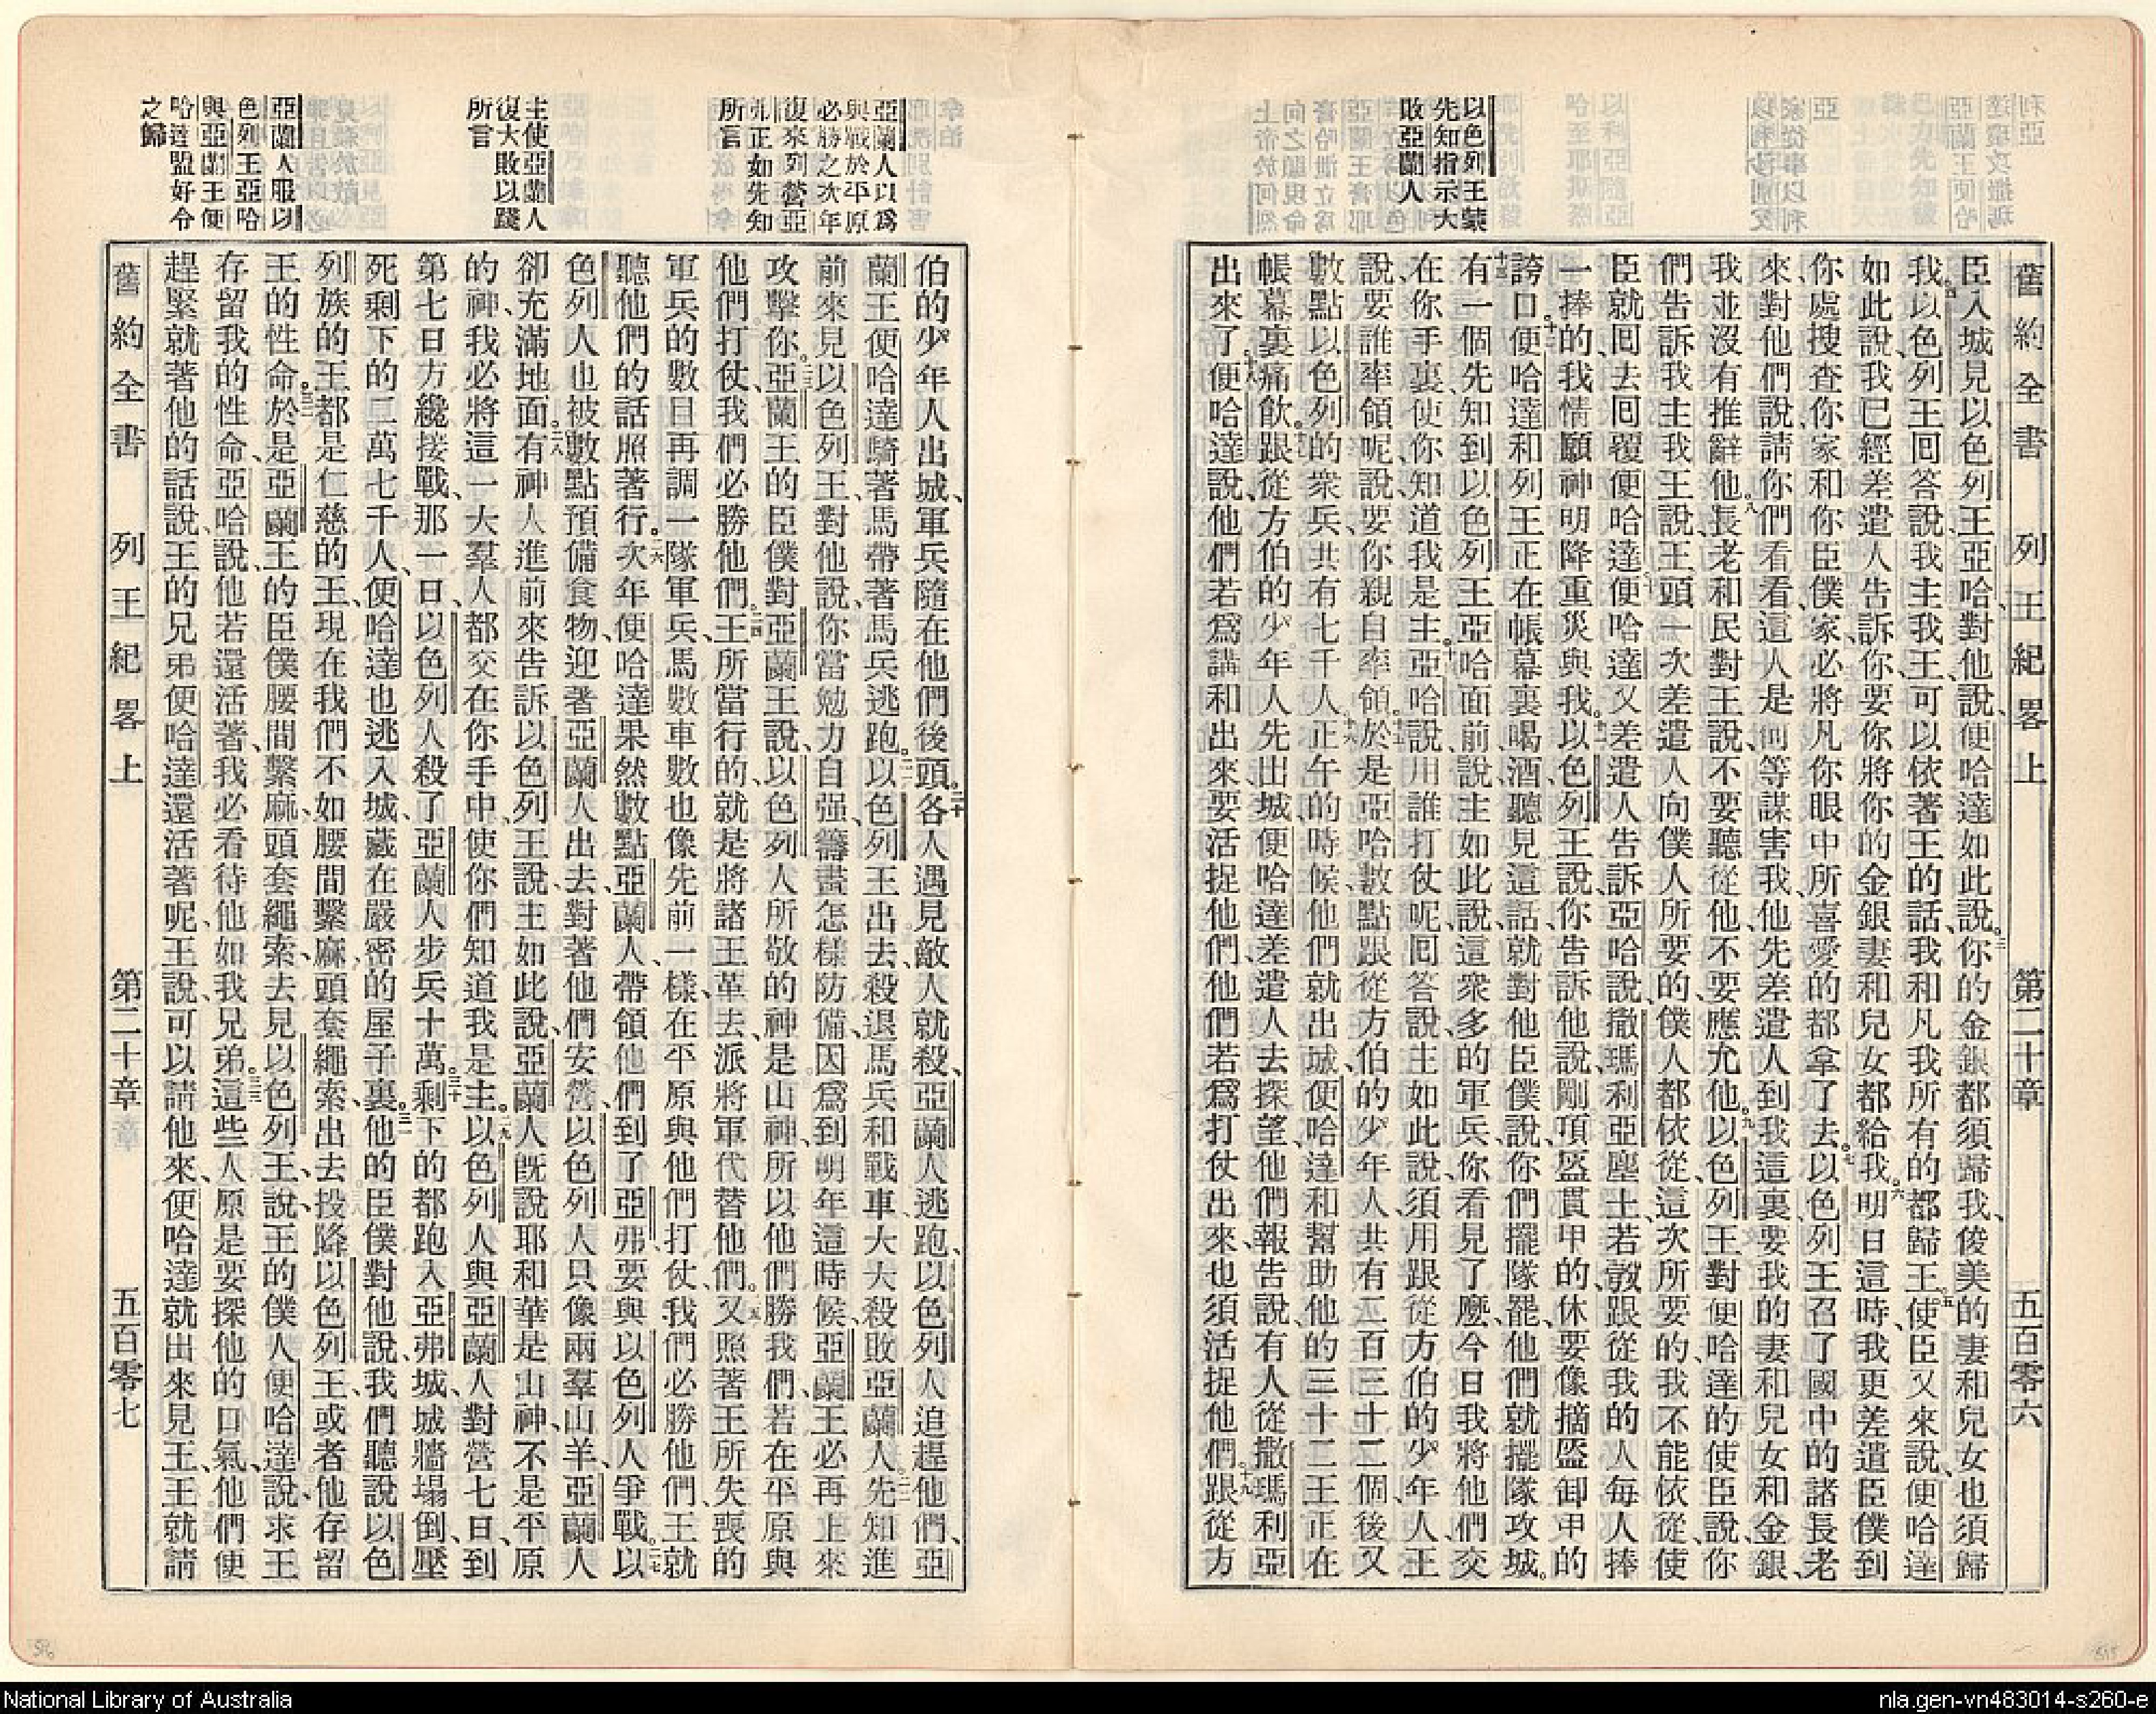 舊約全書 列王紀畧上 第二十章 五百零六
以色列王蒙
先知指示大
敗亞蘭人
臣入城見以色列王亞哈對他說、便哈達如此說。三你的金銀都須歸我、俊美的妻和兒女也須歸
我。四以色列王回答說、我主我王、可以依著王的話、我和凡我所有的都歸王。五使臣又來說、便哈達
如此說、我已經差遣人告訴你、要你將你的金銀妻和兒女都給我。六明日這時、我更差遣臣僕到
你處搜查你家和你臣僕家、必將凡你眼中所喜愛的都拿了去。七以色列王召了國中的諸長老
來對他們說、請你們看看這人是何等謀害我、他先差遣人到我這裏、要我的妻和兒女和金銀、
我並沒有推辭他。八長老和民對王說、不要聽從他、不要應允他。九以色列王對便哈達的使臣說、你
們告訴我主我王說、王頭一次差遣人向僕人所要的、僕人都依從、這次所要的、我不能依從、使
臣就回去回覆便哈達。十便哈達又差遣人告訴亞哈說、撒瑪利亞塵土、若彀跟從我的人每人捧
一捧的、我情願神明降重災與我。十一以色列王說、你告訴他說、剛頂盔貫甲的、休要像摘盔卸甲的
誇口。十二便哈達和列王正在帳幕裏喝酒、聽見這話、就對他臣僕說、你們擺隊罷、他們就擺隊攻城。
十三有一個先知到以色列王亞哈面前說、主如此說、這衆多的軍兵、你看見了麼、今日我將他們交
在你手裏、使你知道我是主。十四亞哈說、用誰打仗呢、回答說、主如此說、須用跟從方伯的少年人、王
說、要誰率領呢、說、要你親自率領。十五於是亞哈數點跟從方伯的少年人、共有二百三十二個、後又
數點以色列的衆兵、共有七千人。十六正午的時候、他們就出城、便哈達和幫助他的三十二王正在
帳幕裏痛飲。十七跟從方伯的少年人先出城、便哈達差遣人去探望、他們報告說、有人從撒瑪利亞
出來了。十八便哈達說、他們若爲講和出來、要活捉他們、他們若爲打仗出來、也須活捉他們。十九跟從方
亞蘭人以爲
與戰於平原
必勝之次年
復來列營亞
弗正如先知
所言
主使亞蘭人
復大敗以踐
所言
亞蘭人服以
色列王亞哈
與亞蘭王便
哈達盟好令
之歸
伯的少年人出城、軍兵隨在他們後頭。二十各人遇見敵人就殺、亞蘭人逃跑、以色列人追趕他們、亞
蘭王便哈達騎著馬帶著馬兵逃跑。二一以色列王出去、殺退馬兵和戰車、大大殺敗亞蘭人。二二先知進
前來見以色列王、對他說、你當勉力自强、籌畫怎樣防備、因爲到明年這時候、亞蘭王必再上來
攻擊你。二三亞蘭王的臣僕對亞蘭王說、以色列人所敬的神是山神、所以他們勝我們、若在平原與
他們打仗、我們必勝他們。二四王所當行的、就是將諸王革去、派將軍代替他們。二五又照著王所失喪的
軍兵的數目、再調一隊軍兵、馬數車數也像先前一樣、在平原與他們打仗、我們必勝他們、王就
聽他們的話照著行。二六次年便哈達果然數點亞蘭人、帶領他們到了亞弗、要與以色列人爭戰。二七以
色列人也被數點、預備食物、迎著亞蘭人出去、對著他們安營、以色列人只像兩羣山羊、亞蘭人
卻充滿地面。二八有神人進前來告訴以色列王說、主如此說、亞蘭人旣說耶和華是山神、不是平原
的神、我必將這一大羣人、都交在你手中、使你們知道我是主。二九以色列人與亞蘭人對營七日、到
第七日方纔接戰、那一日以色列人殺了亞蘭人步兵十萬。三十剩下的都跑入亞弗城、城牆塌倒、壓
死剩下的二萬七千人、便哈達也逃入城、藏在嚴密的屋子裏。三一他的臣僕對他說、我們聽說以色
列族的王都是仁慈的王、現在我們不如腰間繫麻、頭套繩索、出去投降以色列王、或者他存留
王的性命。三二於是亞蘭王的臣僕腰間繫麻、頭套繩索、去見以色列王、說、王的僕人便哈達說、求王
存留我的性命、亞哈說、他若還活著、我必看待他如我兄弟。三三這些人原是要探他的口氣、他們便
趕緊就著他的話說、王的兄弟便哈達還活著呢、王說、可以請他來、便哈達就出來見王、王就請
舊約全書 列王紀畧上 第二十章 五百零七
National Library of Australia
nla.gen-vn483014-s260-e